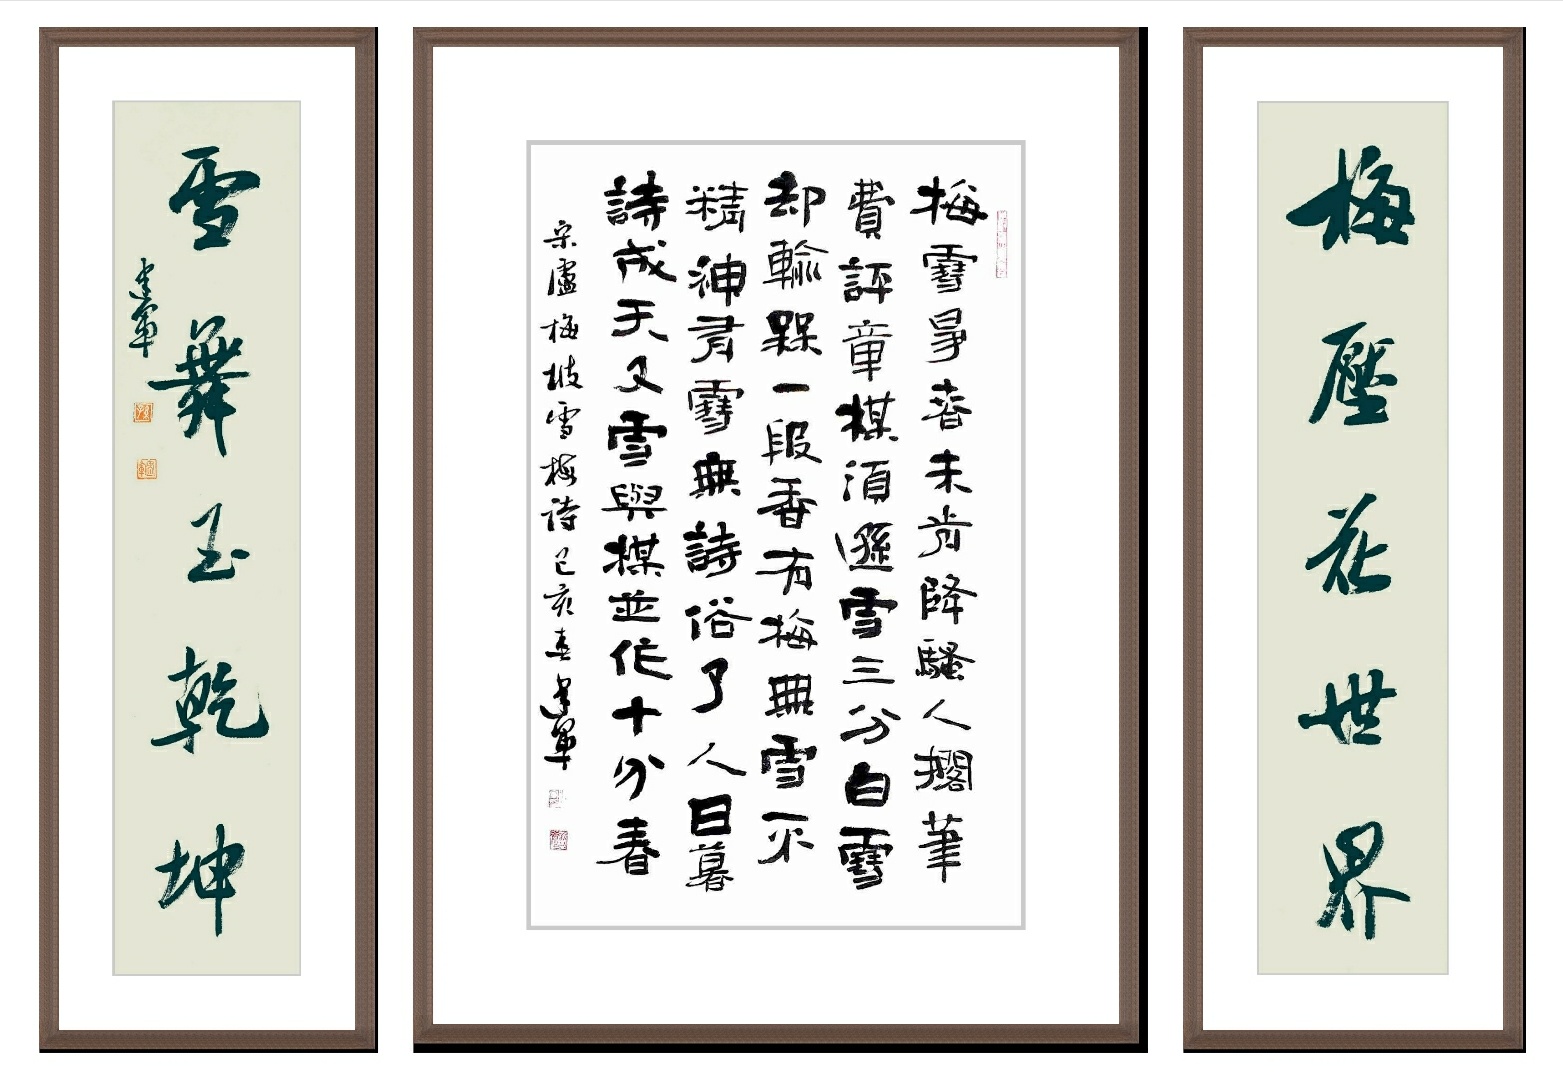 梅壓花世界
梅雪爭春未肯降騷人擱筆
費評章楳須遜雪三分白雪
却輸槑一段香有梅無雪不
精神有雪無詩俗了人日暮
詩成天又雪與楳並作十分春
宋盧梅坡雪梅詩己亥春建軍
雪舞玉乾坤
建軍